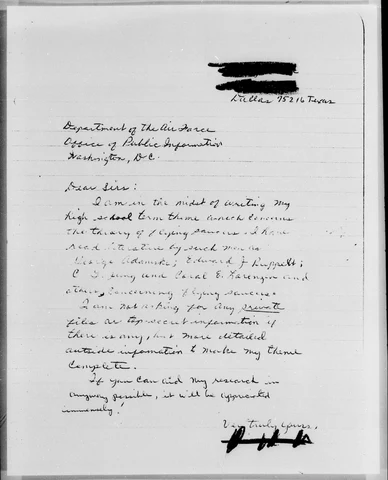 Dallas 75216 Texas
Department of the Air Force
Office of Public Information
Washington, D.C.
Dear Sirs:
I am in the midst of writing my
high school term theme which concerns
the theory of flying saucers. I have
read literature by such men as
George Adamski; Edward J. Ruppelt;
C. G. Jung and Coral E. Lorenzen and
others, concerning flying saucers.
I am not asking for any private
files or top secret information if
there is any, but more detailed
outside information to make my theme
complete.
If you can aid my research in
anyway possible, it will be appreciated
immensely!
Very truly yours,